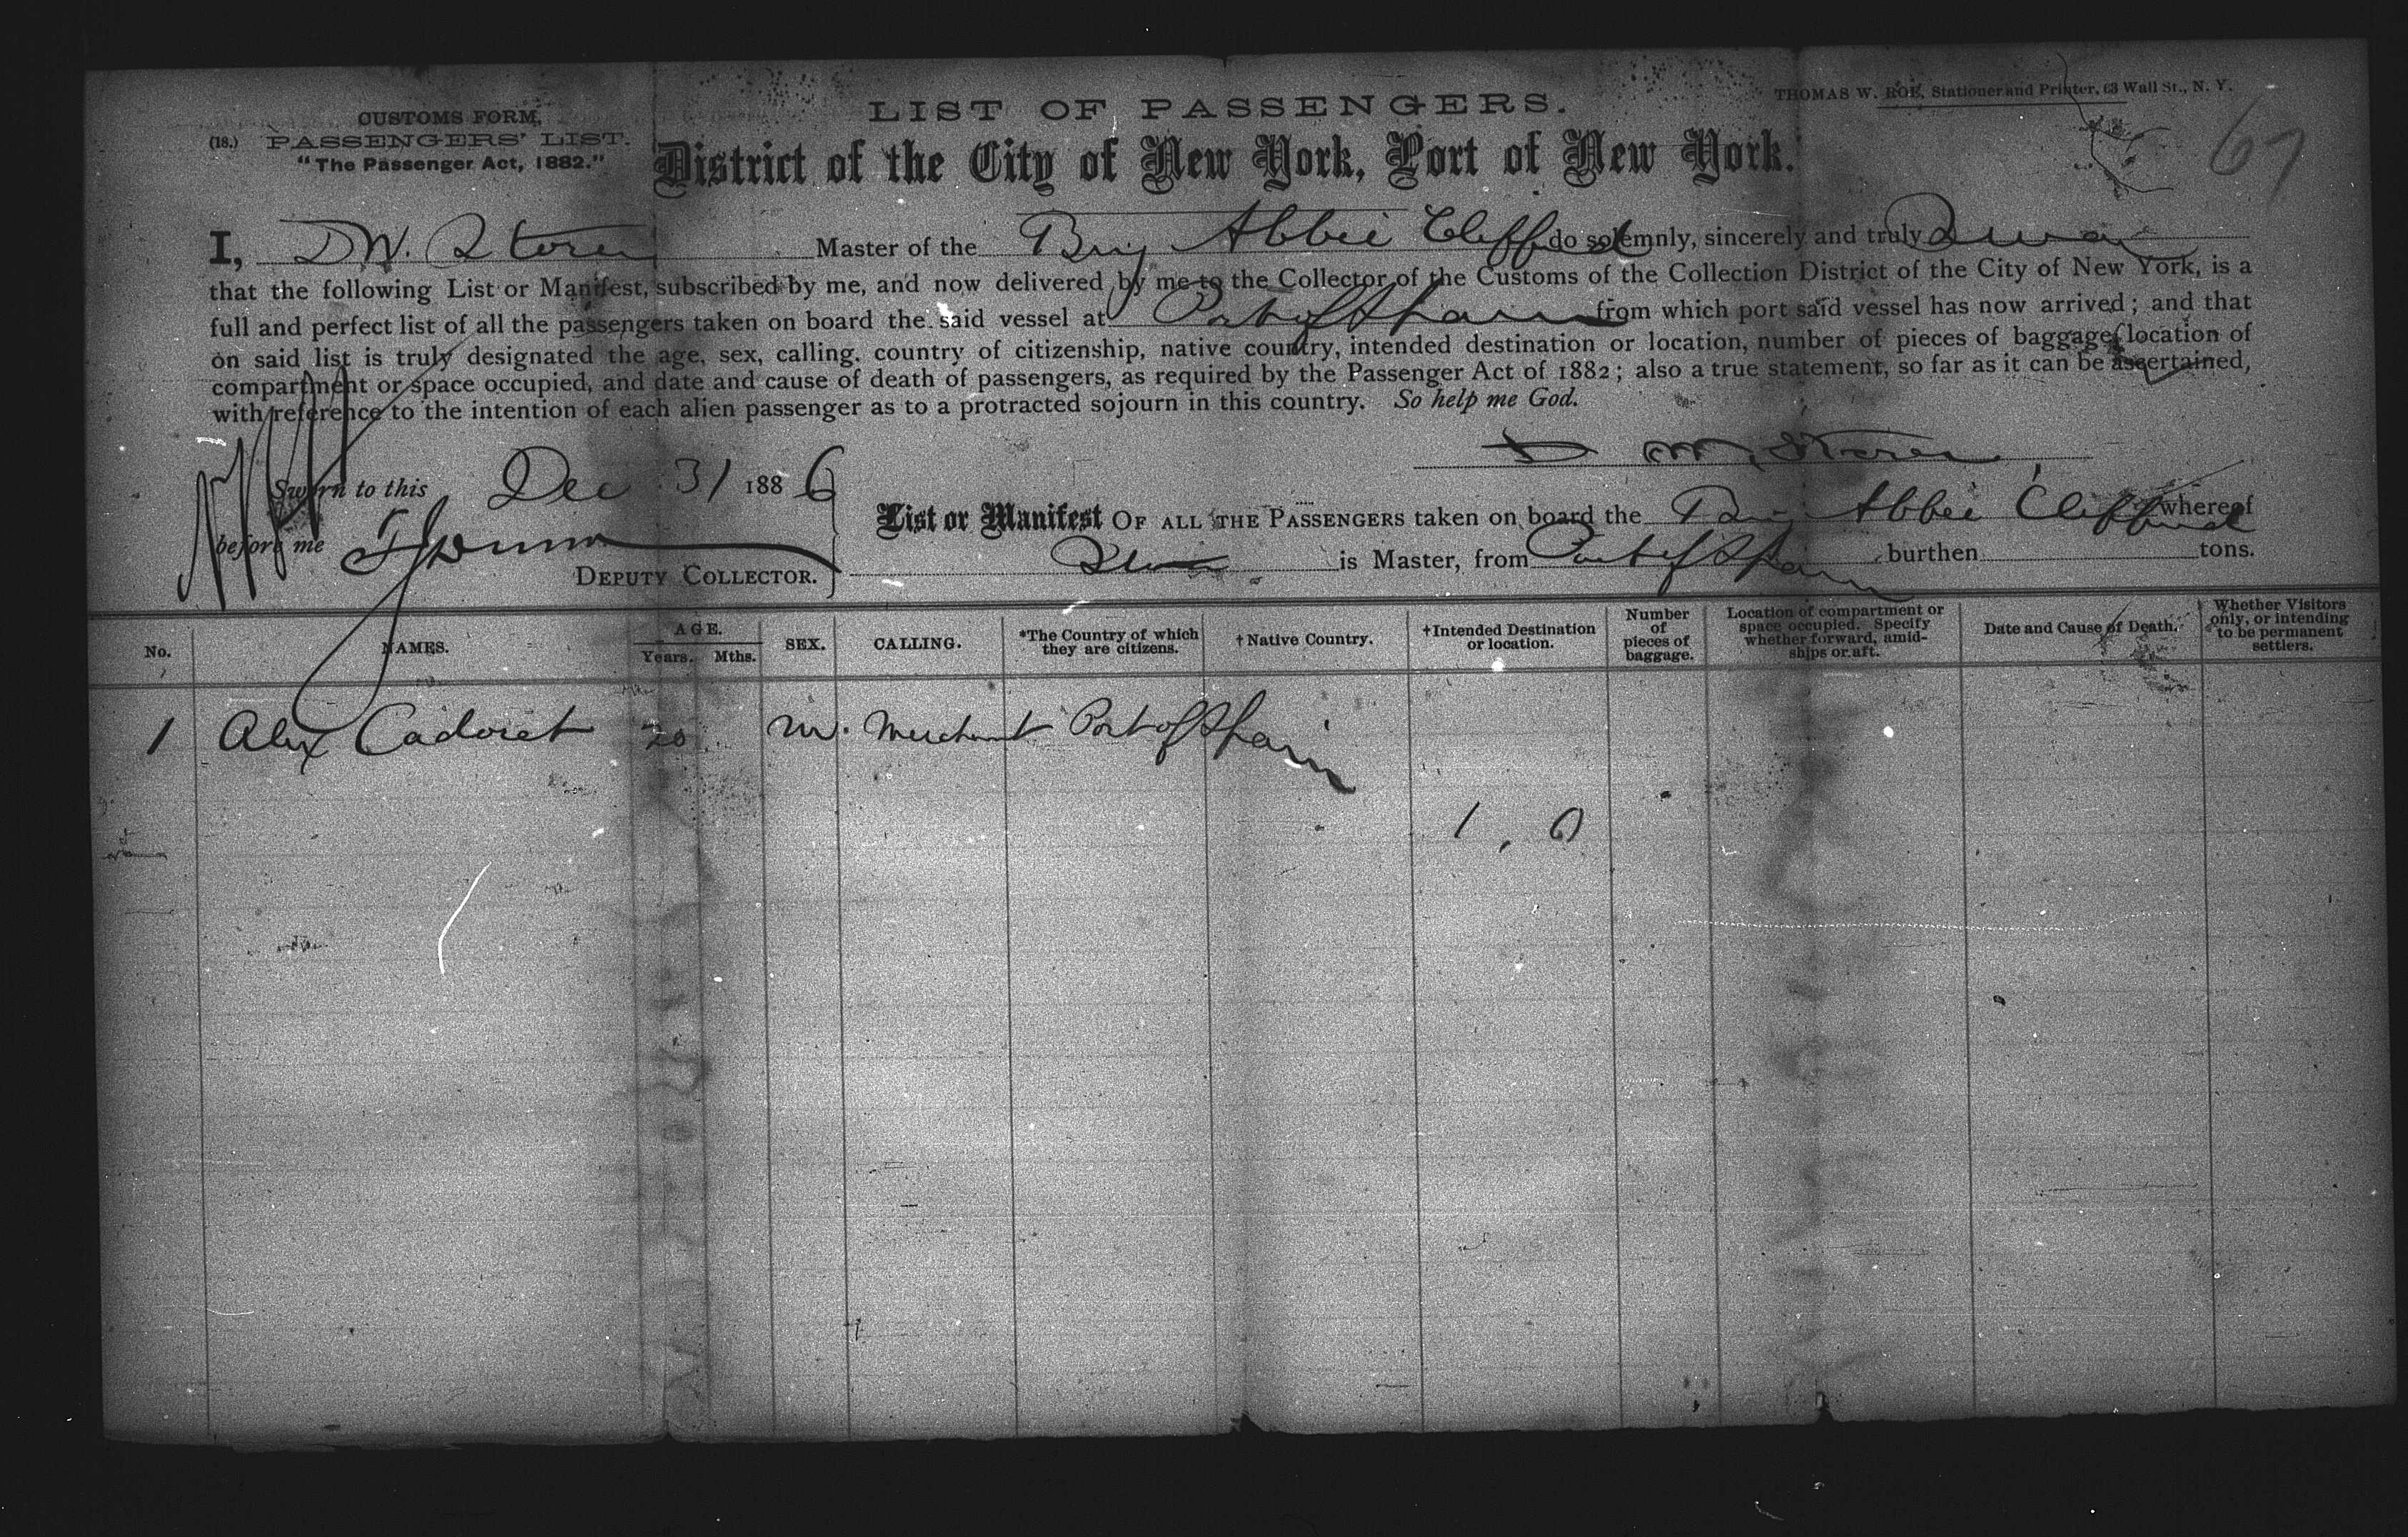 CUSTOMS FORM,
(18.) PASSENGERS' LIST.
"The Passenger Act, 1882."
LIST OF PASSENGERS.
THOMAS W. ROE, Stationer and Printer, 63 Wall St., N. Y.
67
District of the City of New York, Port of New York.
I, D W. Storer Master of the Brig Abbie Clifford do solemnly, sincerely and truly Swear
that the following List or Manifest, subscribed by me, and now delivered by me to the Collector of the Customs of the Collection District of the City of New York, is a
full and perfect list of all the passengers taken on board the said vessel at Port of Spain from which port said vessel has now arrived; and that
on said list is truly designated the age, sex, calling, country of citizenship, native country, intended destination or location, number of pieces of baggage, location of
compartment or space occupied, and date and cause of death of passengers, as required by the Passenger Act of 1882; also a true statement, so far as it can be ascertained,
with reference to the intention of each alien passenger as to a protracted sojourn in this country. So help me God.
D W Storer
Sworn to this Dec 31 1886
before me
DEPUTY COLLECTOR.
List or Manifest OF ALL THE PASSENGERS taken on board the Brig Abbie Clifford whereof
Storer is Master, from Port of Spain burthen tons.
No. NAMES. AGE. Years. Mths. SEX. CALLING. *The Country of which they are citizens. †Native Country. †Intended Destination or location. Number of pieces of baggage. Location of compartment or space occupied. Specify whether forward, amid-ships or aft. Date and Cause of Death. Whether Visitors only, or intending to be permanent settlers.
1 Alex Cadoret 20 M. Merchant Port of Spain
1, 0